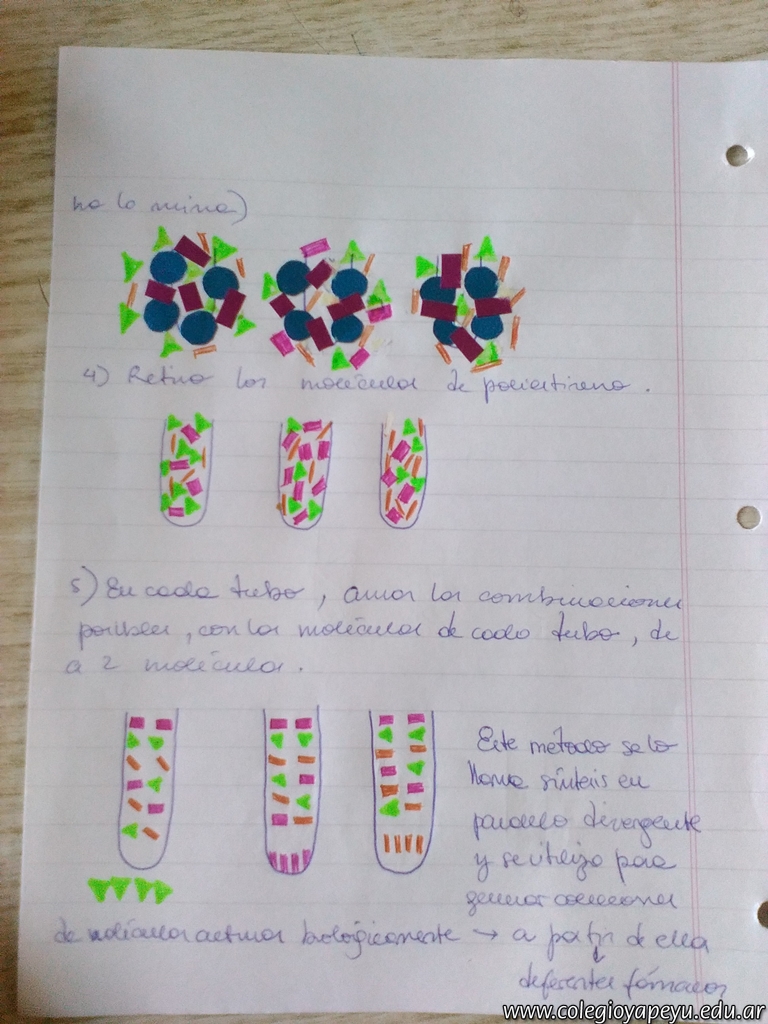 na lo mina)
4) Retiro las moléculas de poliestireno.
5) En cada tubo, armar las combinaciones
posibles, con las moléculas de cada tubo, de
a 2 moléculas.
Este método se lo
llama síntesis en
paralelo divergente
y se utiliza para
generar colecciones
de moléculas activas biológicamente → a partir de ella
↓
diferentes fármacos
www.colegioyapeyu.edu.ar